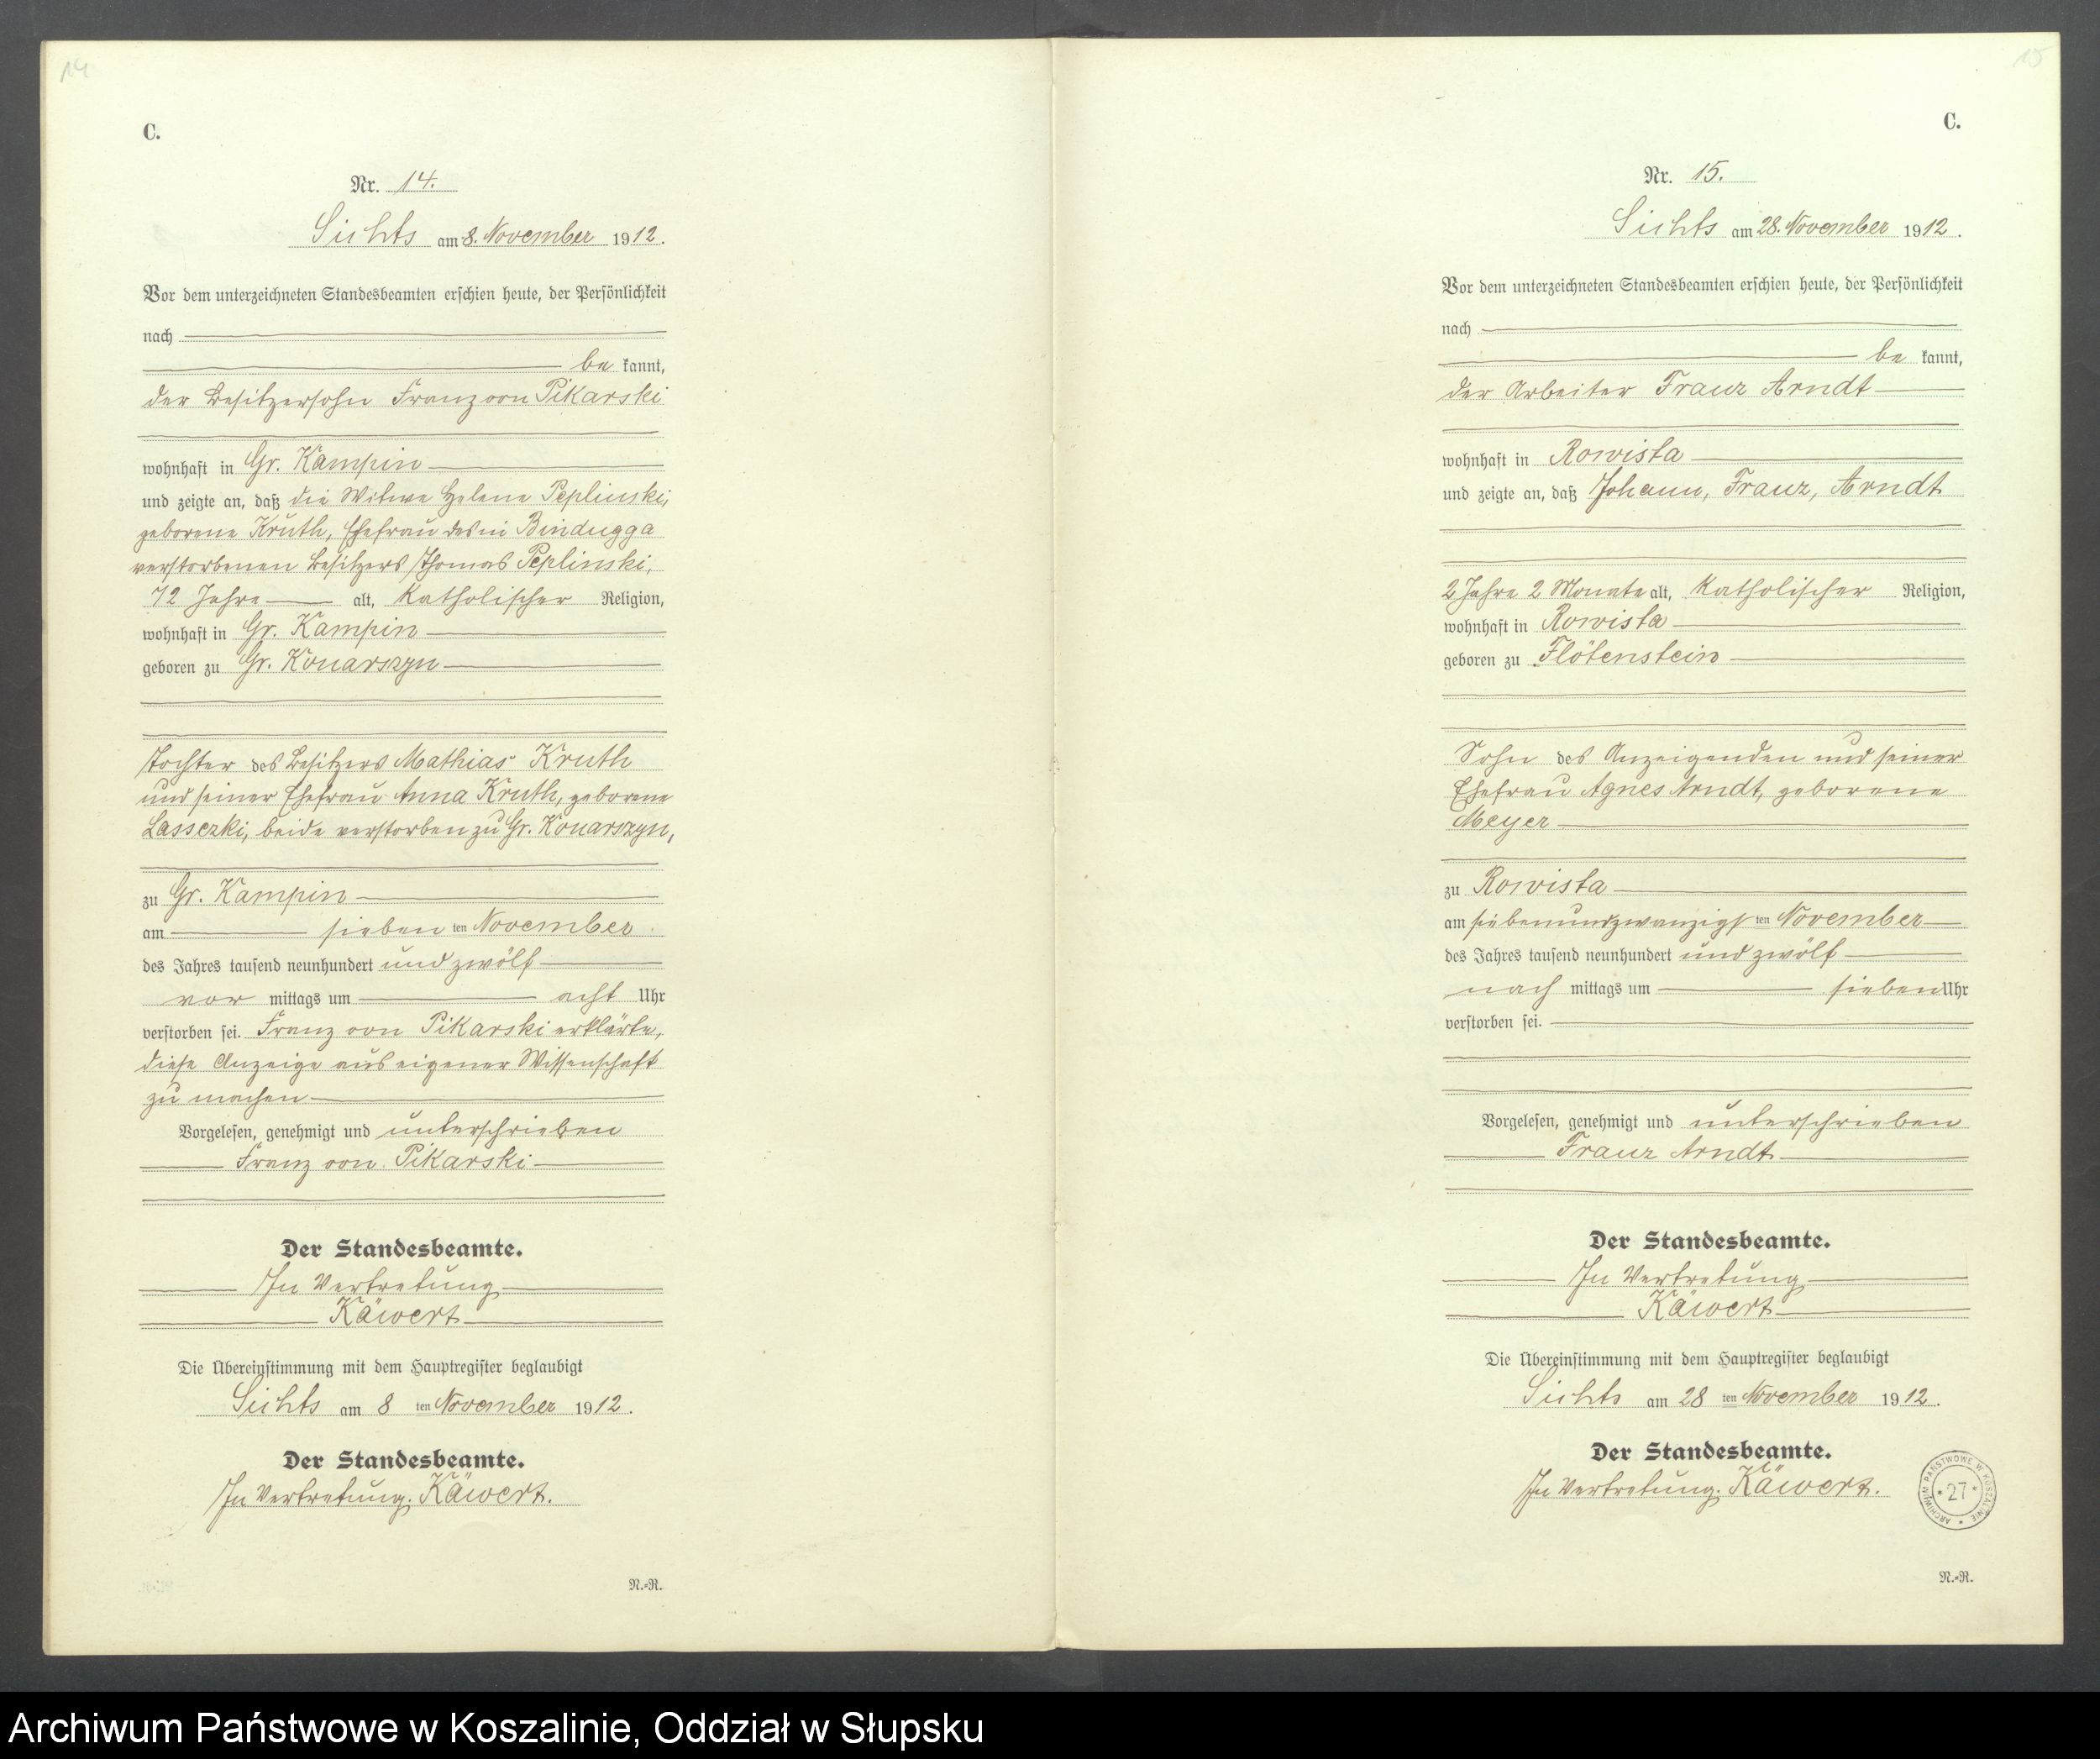 14
C.
Nr. 14.
Sichts am 8. November 1912.
Vor dem unterzeichneten Standesbeamten erschien heute, der Persönlichkeit
nach
be kannt,
der Besitzersohn Franz von Pikarski
wohnhaft in Gr. Kampin
und zeigte an, daß die Witwe Helene Peplinski,
geborene Kruth, Ehefrau des in Bindugga
verstorbenen Besitzers Thomas Peplinski,
72 Jahre alt, Katholischer Religion,
wohnhaft in Gr. Kampin
geboren zu Gr. Konarszyn
Tochter des Besitzers Mathias Kruth
und seiner Ehefrau Anna Kruth, geborene
Lasseski, beide verstorben zu Gr. Konarszyn,
zu Gr. Kampin
am sieben ten November
des Jahres tausend neunhundert und zwölf
vor mittags um acht Uhr
verstorben sei. Franz von Pikarski erklärte,
diese Anzeige aus eigener Wissenschaft
zu machen
Vorgelesen, genehmigt und unterschrieben
Franz von Pikarski
Der Standesbeamte.
In Vertretung
Käwert
Die Übereinstimmung mit dem Hauptregister beglaubigt
Sichts am 8 ten November 1912.
Der Standesbeamte.
In Vertretung. Käwert.
N.=R.
15
C.
Nr. 15.
Sichts am 28. November 1912.
Vor dem unterzeichneten Standesbeamten erschien heute, der Persönlichkeit
nach
be kannt,
der Arbeiter Franz Arndt
wohnhaft in Rowista
und zeigte an, daß Johann, Franz, Arndt
2 Jahre 2 Monate alt, Katholischer Religion,
wohnhaft in Rowista
geboren zu Flötenstein
Sohn des Anzeigenden und seiner
Ehefrau Agnes Arndt, geborene
Meyer
zu Rowista
am siebenundzwanzigs ten November
des Jahres tausend neunhundert und zwölf
nach mittags um sieben Uhr
verstorben sei.
Vorgelesen, genehmigt und unterschrieben
Franz Arndt
Der Standesbeamte.
In Vertretung
Käwert
Die Übereinstimmung mit dem Hauptregister beglaubigt
Sichts am 28 ten November 1912.
Der Standesbeamte.
In Vertretung. Käwert.
ARCHIWUM PAŃSTWOWE W KOSZALINIE
* 27 *
N.=R.
Archiwum Państwowe w Koszalinie, Oddział w Słupsku